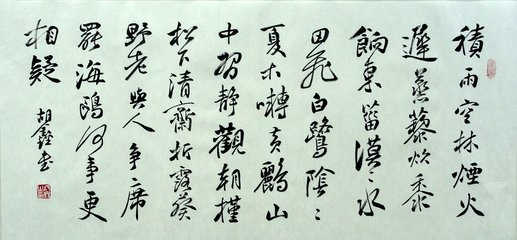 積雨空林煙火
遲蒸藜炊黍
餉東菑漠〻水
田飛白鷺陰〻
夏木囀黃鸝山
中習靜觀朝槿
松下清齋折露葵
野老與人爭席
罷海鷗何事更
相疑
胡鑫书